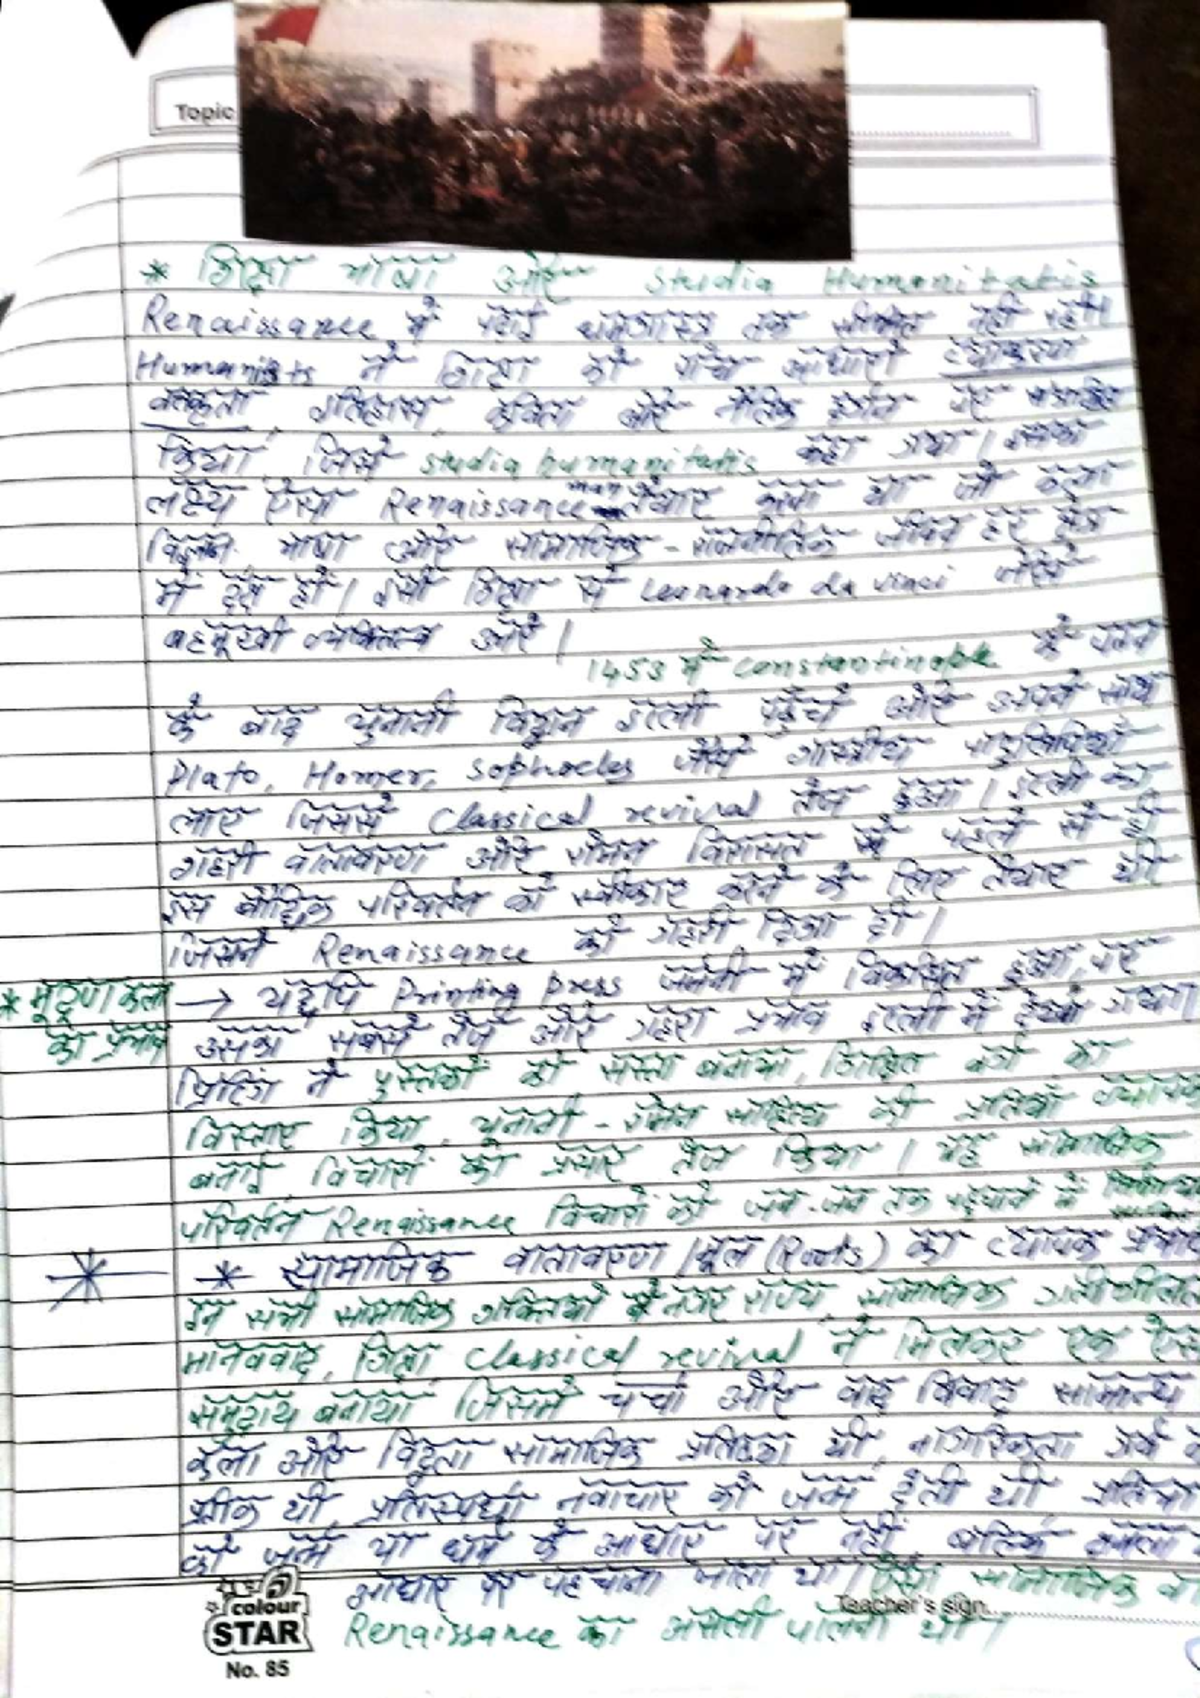 Topic
* शिक्षा भाषा और Studia Humanitatis
Renaissance में पढ़ाई धर्मशास्त्र तक सीमित नहीं रही।
Humanists ने शिक्षा को पाँच आधारों व्याकरण
वक्तृता, इतिहास, कविता और नैतिक दर्शन पर
किया, जिसे studia humanitatis कहा गया। इसका
लक्ष्य ऐसा Renaissance man तैयार करना था जो कला
विज्ञान भाषा और सामाजिक - राजनीतिक जीवन हर क्षेत्र
में दक्ष हो। इसी शिक्षा से Leonardo da vinci जैसे
बहुमुखी व्यक्तित्व उभरे।
1453 में constantinople के पतन
के बाद यूनानी विद्वान इटली पहुँचे और अपने साथ
Plato, Homer, Sophocles जैसे शास्त्रीय पांडुलिपियाँ
लाए जिससे Classical revival तेज हुआ। इटली का
शहरी वातावरण और रोमन विरासत पहले से ही
इस बौद्धिक परिवर्तन को स्वीकार करने के लिए तैयार थी
जिसने Renaissance को गहरी दिशा दी।
* मुद्रण कला का प्रभाव → यद्यपि Printing press जर्मनी में विकसित हुआ, पर
उसका सबसे तेज और गहरा प्रभाव इटली में देखा गया।
प्रिंटिंग ने पुस्तकों को सस्ता बनाया, शिक्षित वर्ग का
विस्तार किया, यूनानी - रोमन साहित्य की प्रतियाँ
बनाई, विचारों का प्रचार तेज किया। यह सामाजिक
परिवर्तन Renaissance विचारों को जन-जन तक पहुँचाने में
* सामाजिक वातावरण / मूल (Roots) का व्यापक प्रभाव
इन सभी सामाजिक शक्तियों ने नगर राज्य, सामाजिक
मानववाद, शिक्षा, classical revival ने मिलकर एक ऐसा
समुदाय बनाया जिसमें चर्चा और वाद विवाद सामान्य
कला और विद्वता सामाजिक प्रतिष्ठा थी, नागरिकता गर्व
प्रतीक थी, प्रतिस्पर्धा नवाचार को जन्म देती थी
को जन्म या धर्म के आधार पर नहीं बल्कि क्षमता
आधार पर पहचाना जाता था। ऐसा सामाजिक
Renaissance का असली पालना था।
Teacher's sign
colour
STAR
No. 85